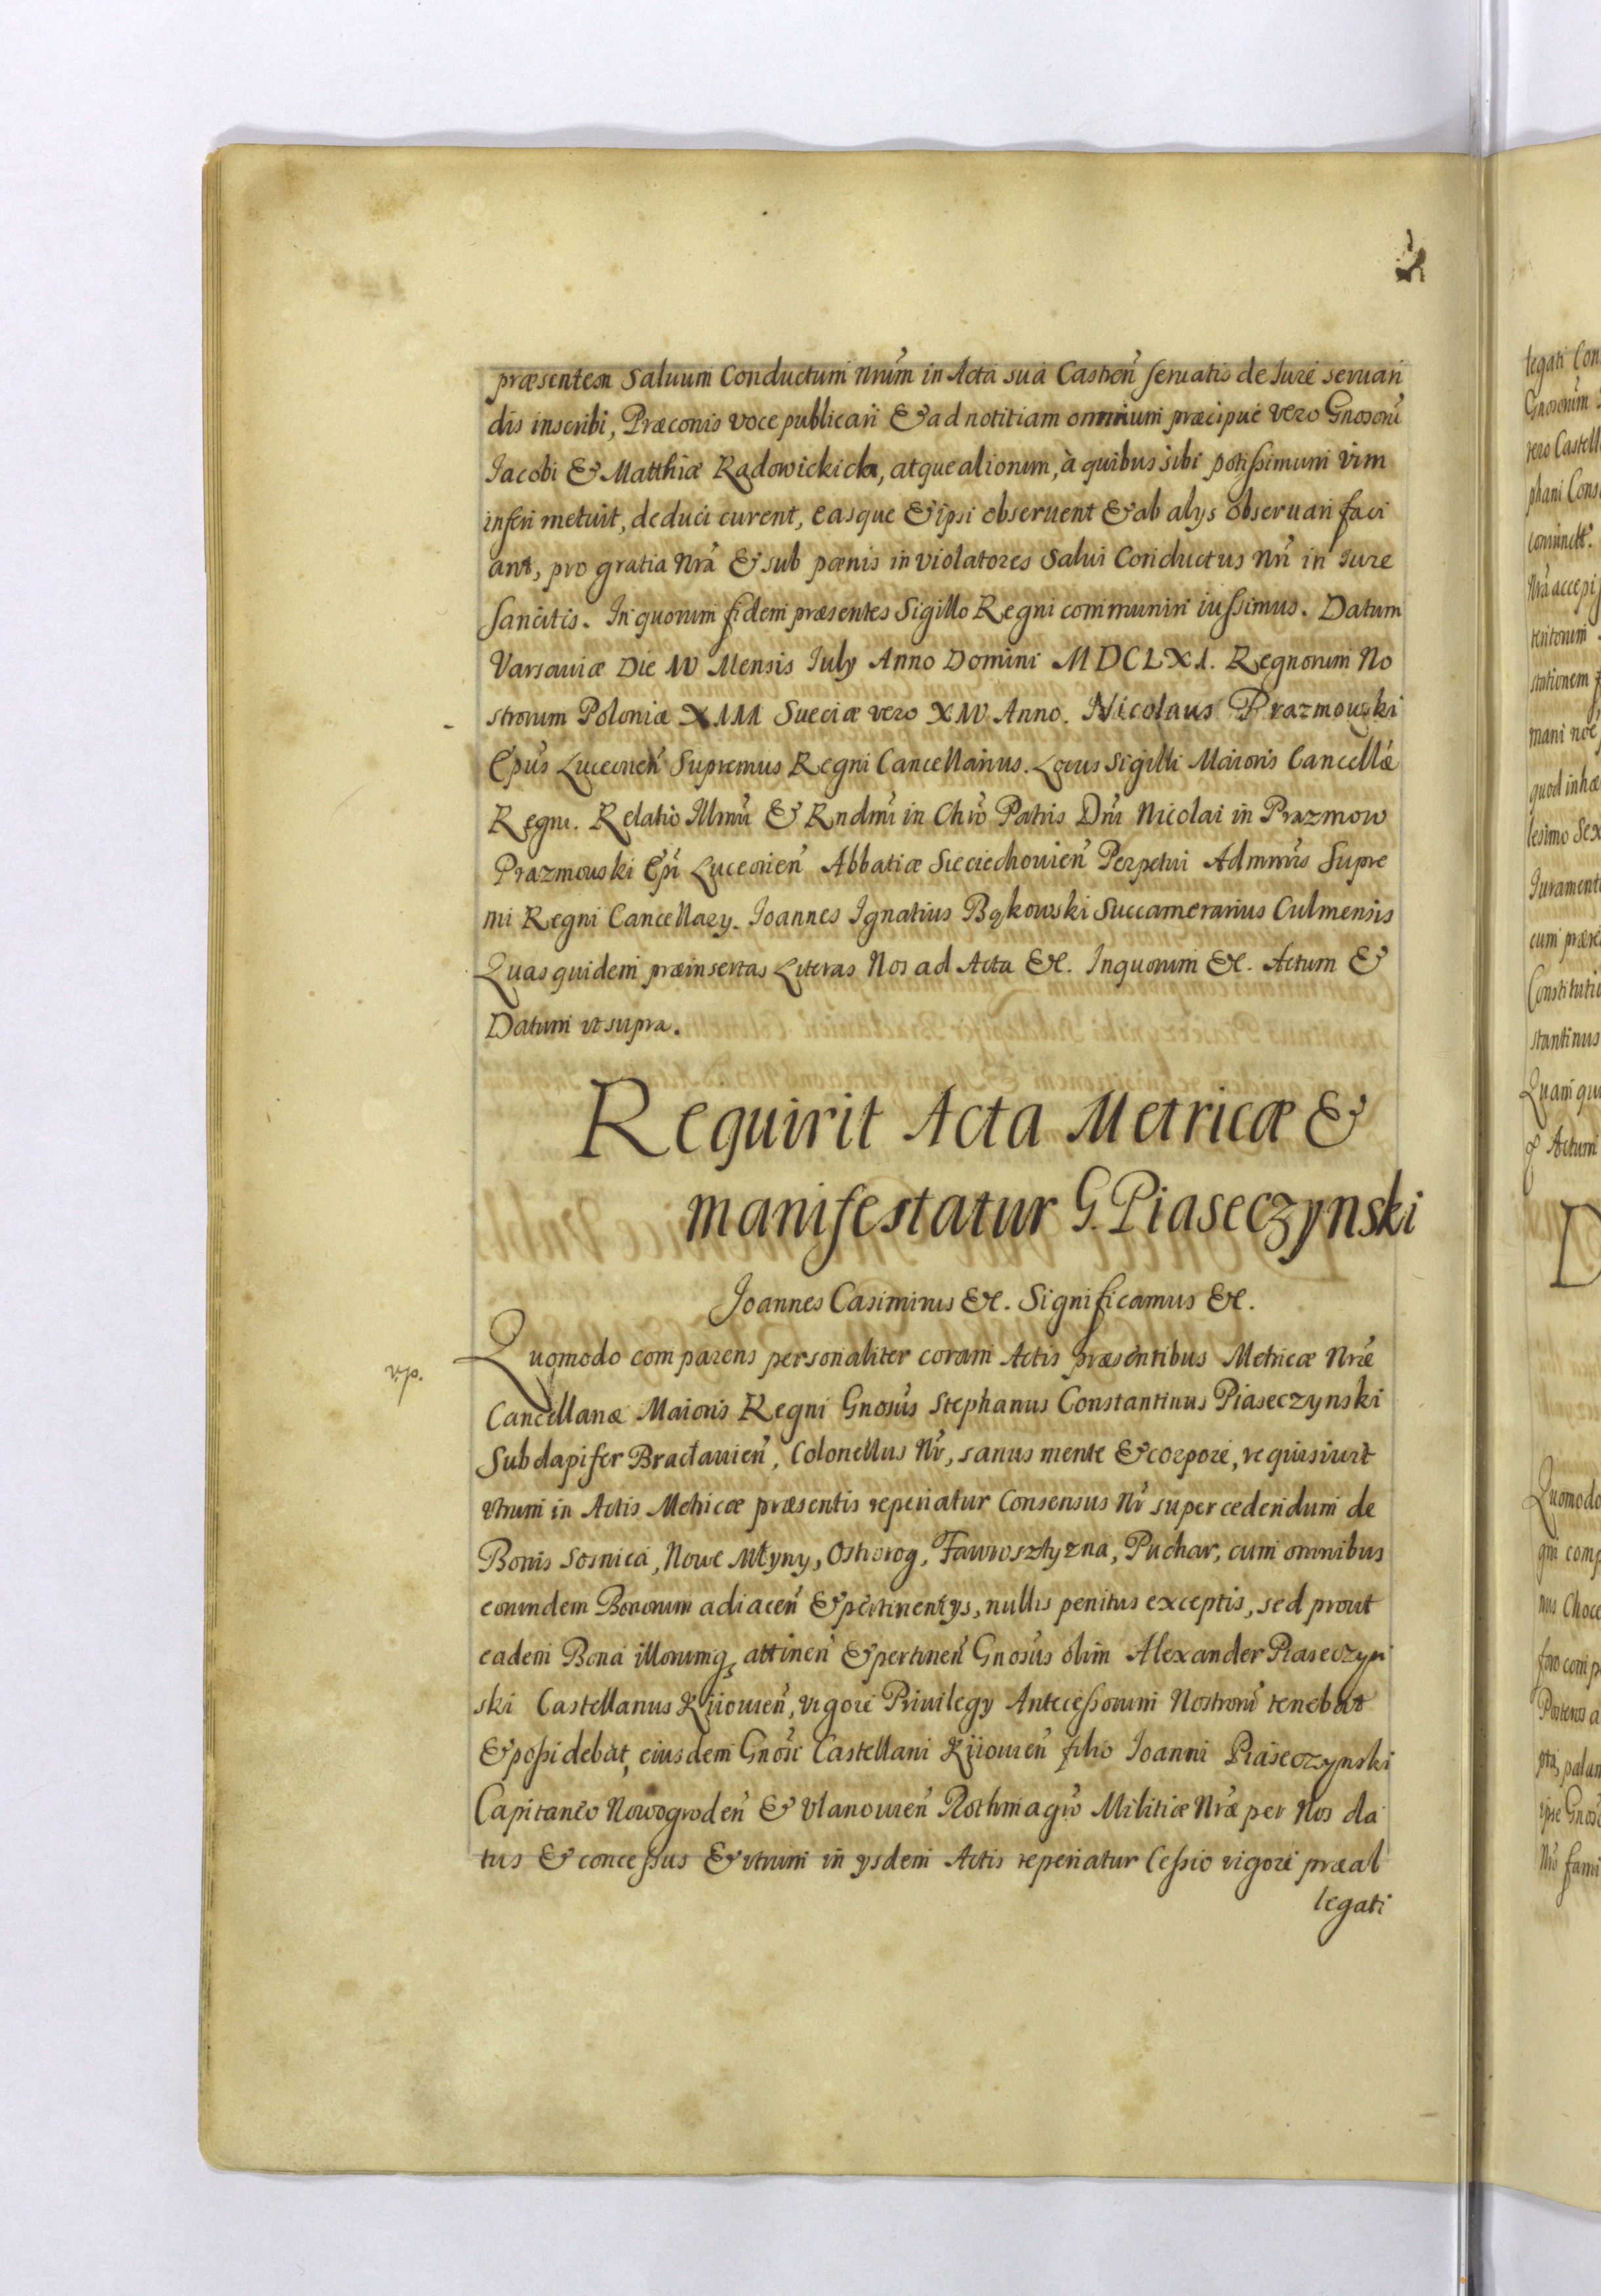 præsentem Saluum Conductum Nrum̃ in Acta sua Castreñ seruatis de Iure seruan
dis inscribi, Præconis voce publicari & ad notitiam omnium præcipue vero Gnosorũ
Iacobi & Matthiæ Radowickich, atque aliorum, à quibus sibi potissimum vim
inferi metuit, deduci curent, easque & ipsi obseruent & ab alys obseruari faci
ant, pro gratia Nrã & sub pœnis in violatores Salui Conductus Nrĩ in Iure
sancitis. In quorum fidem præsentes Sigillo Regni communiri iussimus. Datum
Varsauiæ Die IV Mensis July Anno Domini MDCLXI. Regnorum No
strorum Poloniæ XIII Sueciæ vero XIV Anno. Nicolaus Prazmowski
Epũs Luceorieñ Supremus Regni Cancellarius. Locus Sigilli Maioris Cancellæ
Regni. Relatio Illmĩ & Rndmĩ in Chrõ Patris Dnĩ Nicolai in Prazmow
Prazmowski Epĩ Luceorieñ Abbatiæ Sieciechouieñ Perpetui Admnris̃ Supre
mi Regni Cancellary. Ioannes Ignatius Bąkowski Succamerarius Culmensis
Quas quidem præinsertas Literas Nos ad Acta &c. In quorum &c. Actum &
Datum vt supra.
Requirit Acta Metricæ &
manifestatur G. Piaseczynski
Ioannes Casimirus &c. Significamus &c.
Quomodo comparens personaliter coram Actis præsentibus Metricæ Nræ̃
Cancellariæ Maioris Regni Gnosũs Stephanus Constantinus Piaseczynski
Subdapifer Bracłauieñ, Colonellus Nr̃, sanus mente & corpore, requisiuit
vtrum in Actis Metricæ præsentis reperiatur Consensus Nr̃ super cedendum de
Bonis Sosnica, Nowe Młyny, Ostrorog, Fawrosztyzna, Puchar, cum omnibus
eorundem Bonorum adiaceñ & pertinentys, nullis penitus exceptis, sed prout
eadem Bona illorumq̨ attineñ & pertineñ Gnosũs olim Alexander Piaseczyn
ski Castellanus Kijouieñ, vigore Priuilegy Antecessorum Nostrorũ tenebat
& possidebat, eiusdem Gnosĩ Castellani Kijouieñ filio Ioanni Piaseczynski
Capitaneo Nowogrodeñ & Vlanouieñ Rothmagrõ Militiæ Nræ̃ per Nos da
tus & concessus & vtrum in ysdem Actis reperiatur Cessio vigore præal
legati